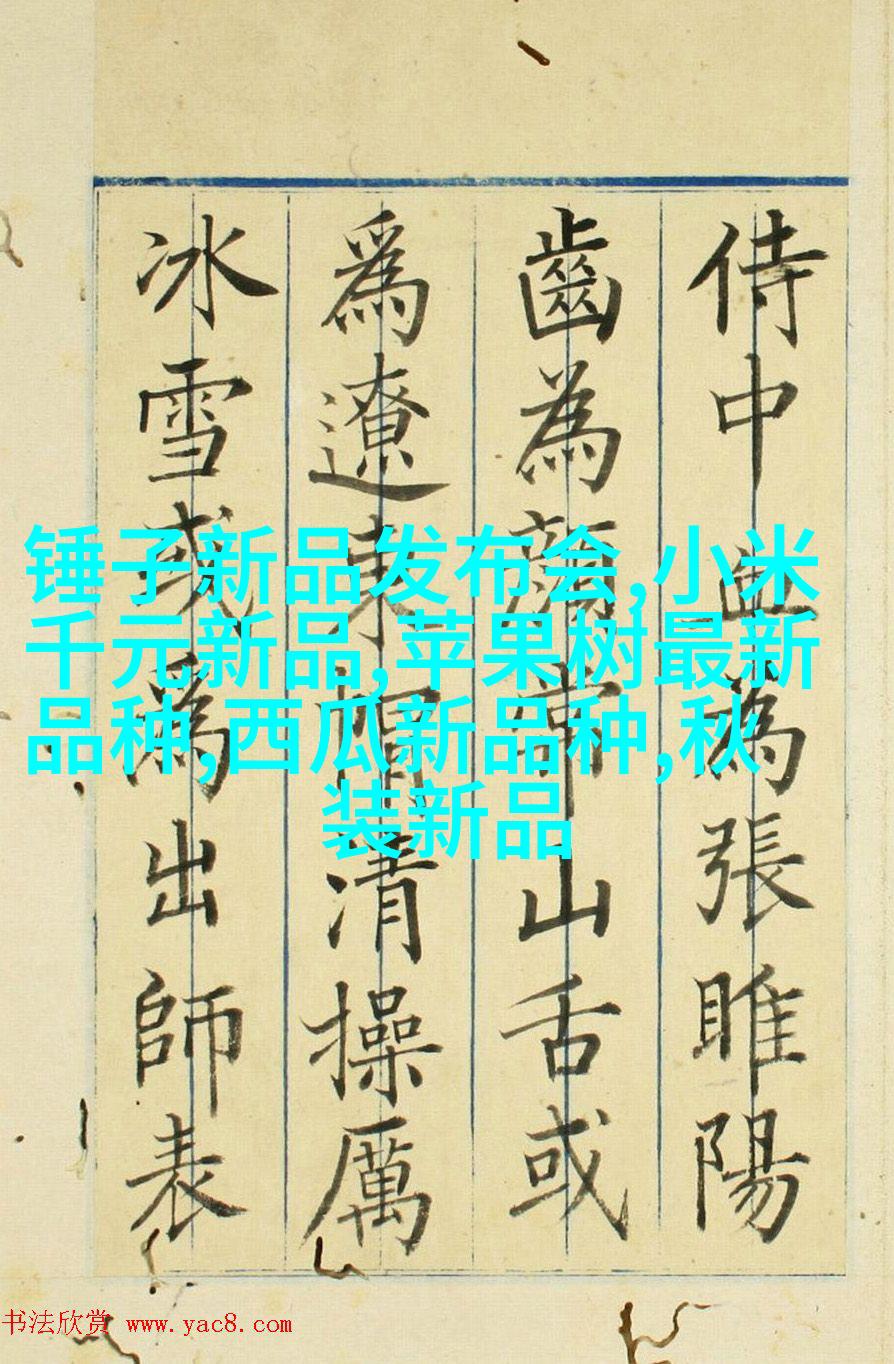 侍中血為張睢陽
齒為顔常山舌或
爲遼東帽清操厲
冰雪或爲出師表
锤子新品发布会,小米
千元新品,苹果树最新
品种,西瓜新品种,秋
装新品
书法欣赏 www.yac8.com